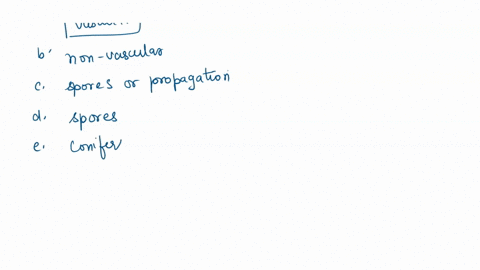 b. non-vascular
c. spores or propagation
d. spores
e. conifer